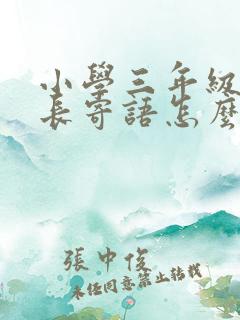 小學三年級
長寄語怎麼
張中俊
未经同意禁止转载